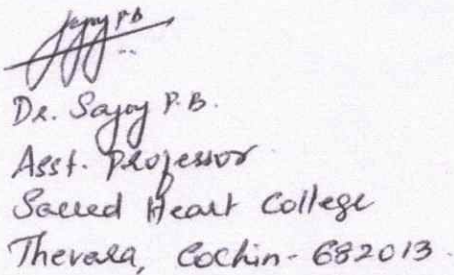 Sajoy P.B
Dr. Sajoy P.B.
Asst. Professor
Sacred Heart College
Thevara, Cochin- 682013.